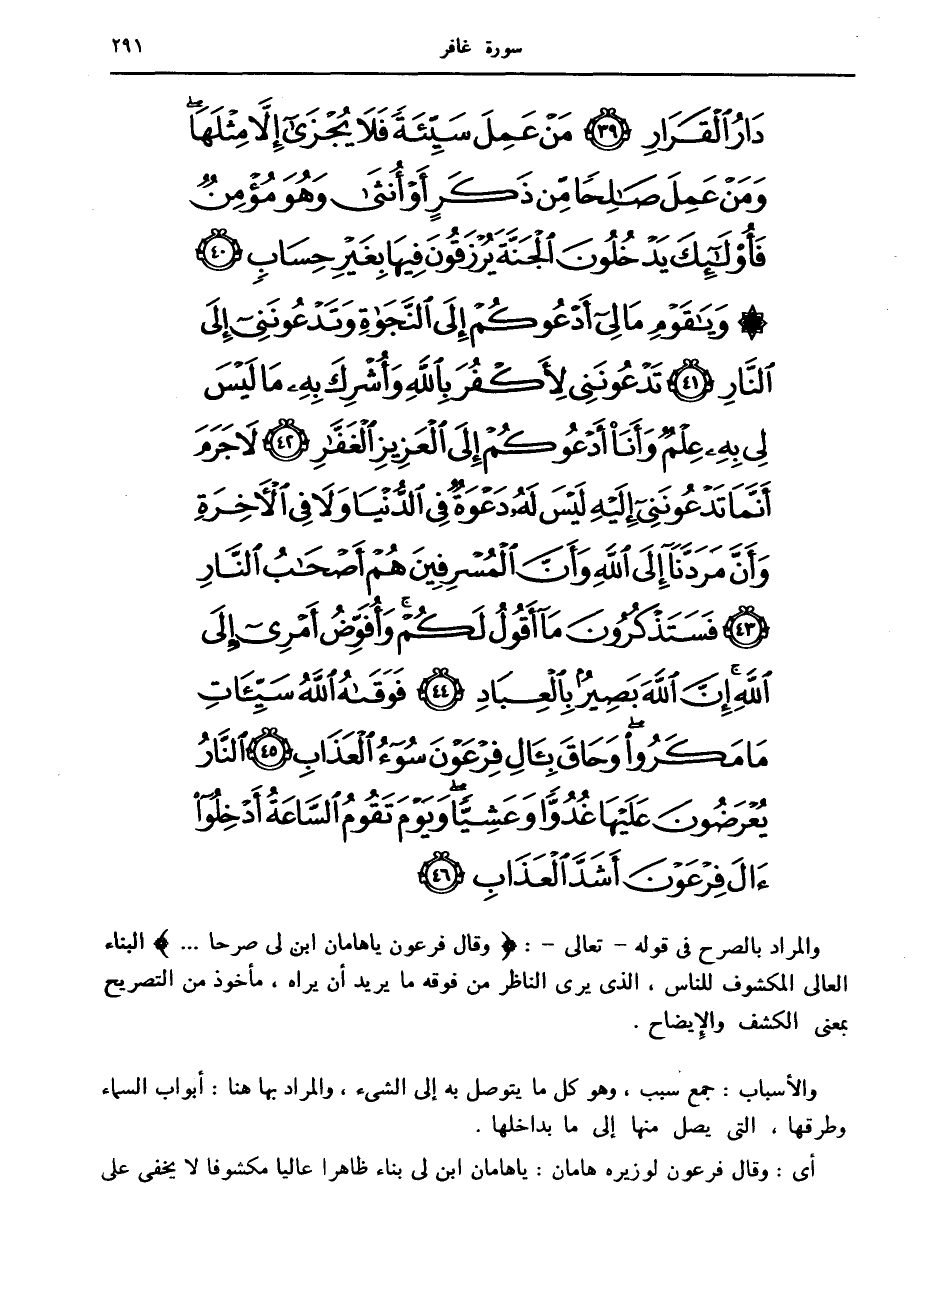 سورة غافر ٢٩١
دَارُ ٱلْقَرَارِ ٣٩ مَنْ عَمِلَ سَيِّئَةً فَلَا يُجْزَىٰٓ إِلَّا مِثْلَهَا ۖ
وَمَنْ عَمِلَ صَٰلِحًا مِّن ذَكَرٍ أَوْ أُنثَىٰ وَهُوَ مُؤْمِنٌ
فَأُو۟لَٰٓئِكَ يَدْخُلُونَ ٱلْجَنَّةَ يُرْزَقُونَ فِيهَا بِغَيْرِ حِسَابٍ ٤٠
۞ وَيَٰقَوْمِ مَا لِىٓ أَدْعُوكُمْ إِلَى ٱلنَّجَوٰةِ وَتَدْعُونَنِىٓ إِلَى
ٱلنَّارِ ٤١ تَدْعُونَنِى لِأَكْفُرَ بِٱللَّهِ وَأُشْرِكَ بِهِۦ مَا لَيْسَ
لِى بِهِۦ عِلْمٌ وَأَنَا۠ أَدْعُوكُمْ إِلَى ٱلْعَزِيزِ ٱلْغَفَّٰرِ ٤٢ لَا جَرَمَ
أَنَّمَا تَدْعُونَنِىٓ إِلَيْهِ لَيْسَ لَهُۥ دَعْوَةٌ فِى ٱلدُّنْيَا وَلَا فِى ٱلْءَاخِرَةِ
وَأَنَّ مَرَدَّنَآ إِلَى ٱللَّهِ وَأَنَّ ٱلْمُسْرِفِينَ هُمْ أَصْحَٰبُ ٱلنَّارِ
٤٣ فَسَتَذْكُرُونَ مَآ أَقُولُ لَكُمْ ۚ وَأُفَوِّضُ أَمْرِىٓ إِلَى
ٱللَّهِ ۚ إِنَّ ٱللَّهَ بَصِيرٌۢ بِٱلْعِبَادِ ٤٤ فَوَقَىٰهُ ٱللَّهُ سَيِّـَٔاتِ
مَا مَكَرُوا۟ ۖ وَحَاقَ بِـَٔالِ فِرْعَوْنَ سُوٓءُ ٱلْعَذَابِ ٤٥ ٱلنَّارُ
يُعْرَضُونَ عَلَيْهَا غُدُوًّا وَعَشِيًّا ۖ وَيَوْمَ تَقُومُ ٱلسَّاعَةُ أَدْخِلُوٓا۟
ءَالَ فِرْعَوْنَ أَشَدَّ ٱلْعَذَابِ ٤٦
والمراد بالصرح فى قوله - تعالى - : ﴿ وقال فرعون ياهامان ابن لى صرحا ... ﴾ البناء
العالى المكشوف للناس ، الذى يرى الناظر من فوقه ما يريد أن يراه ، مأخوذ من التصريح
بمعنى الكشف والإيضاح .
والأسباب : جمع سبب ، وهو كل ما يتوصل به إلى الشىء ، والمراد بها هنا : أبواب السماء
وطرقها ، التى يصل منها إلى ما بداخلها .
أى : وقال فرعون لوزيره هامان : ياهامان ابن لى بناء ظاهرا عاليا مكشوفا لا يخفى على